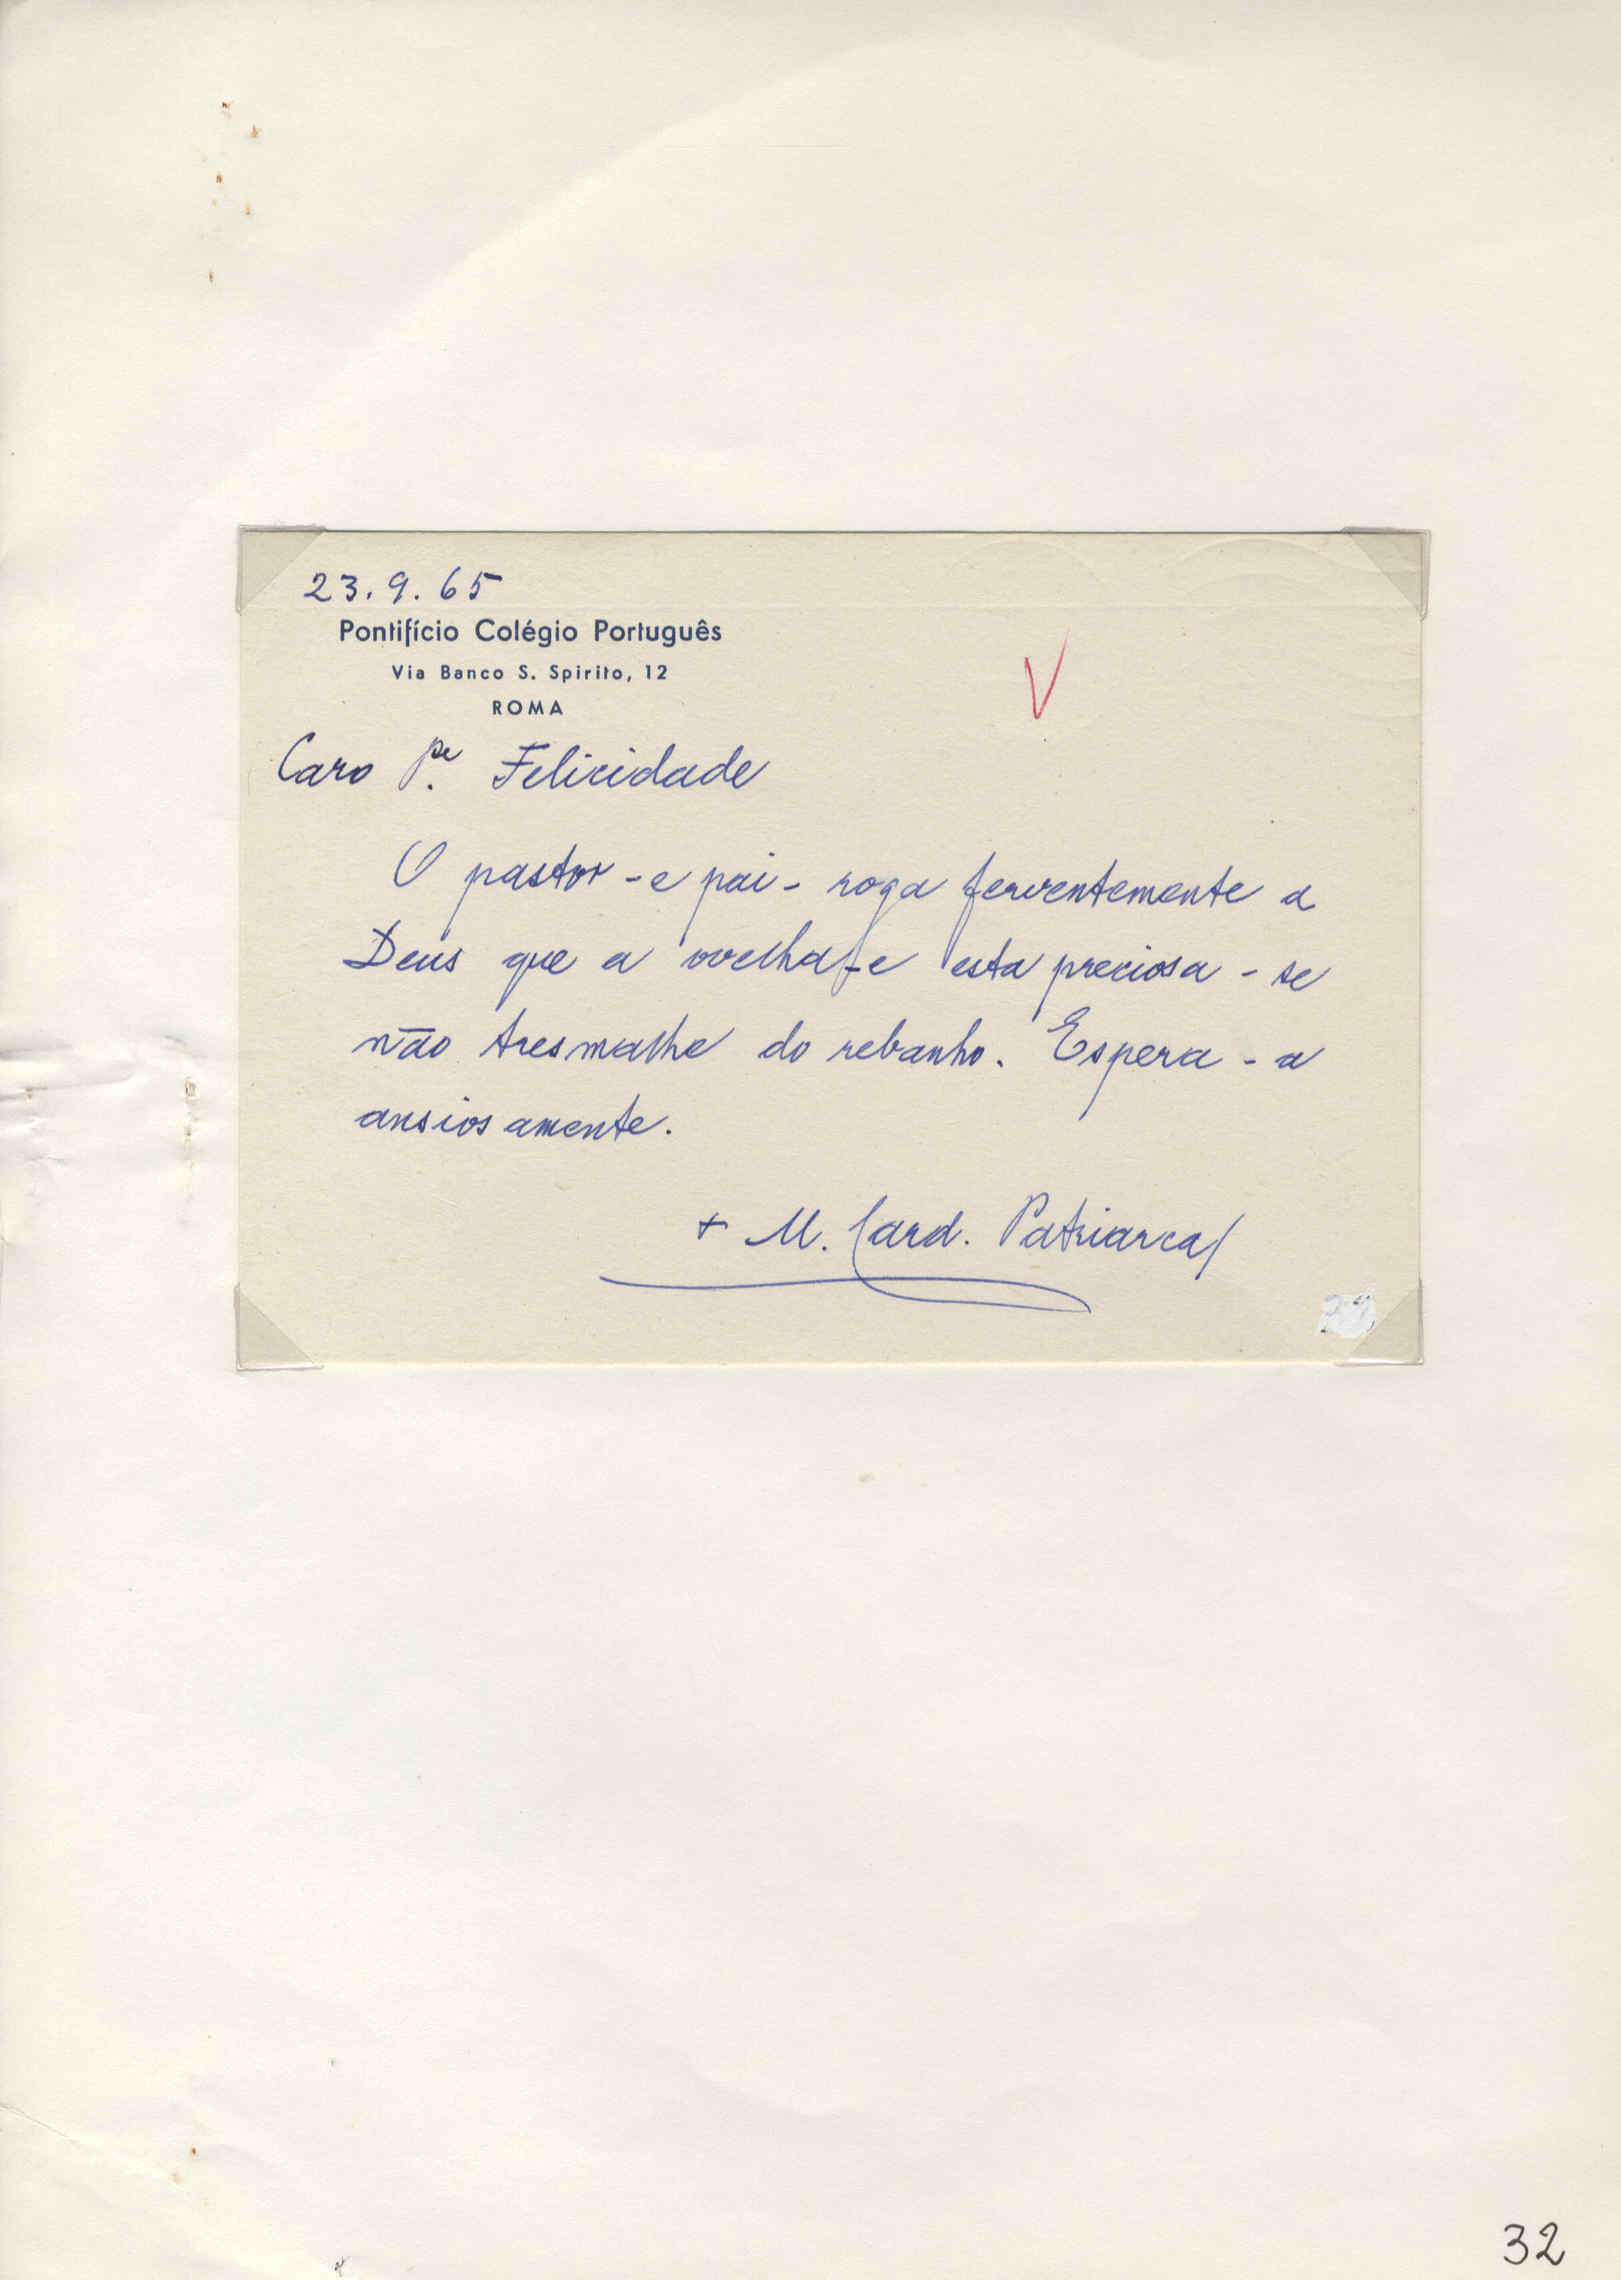 23.9.65
Pontifício Colégio Português
Via Banco S. Spirito, 12
ROMA
Caro Pe. Felicidade
O pastor - e pai - roga ferventemente a
Deus que a ovelha - e esta preciosa - se
não tresmalhe do rebanho. Espera-a
ansiosamente.
+ M. Card. Patriarca
32